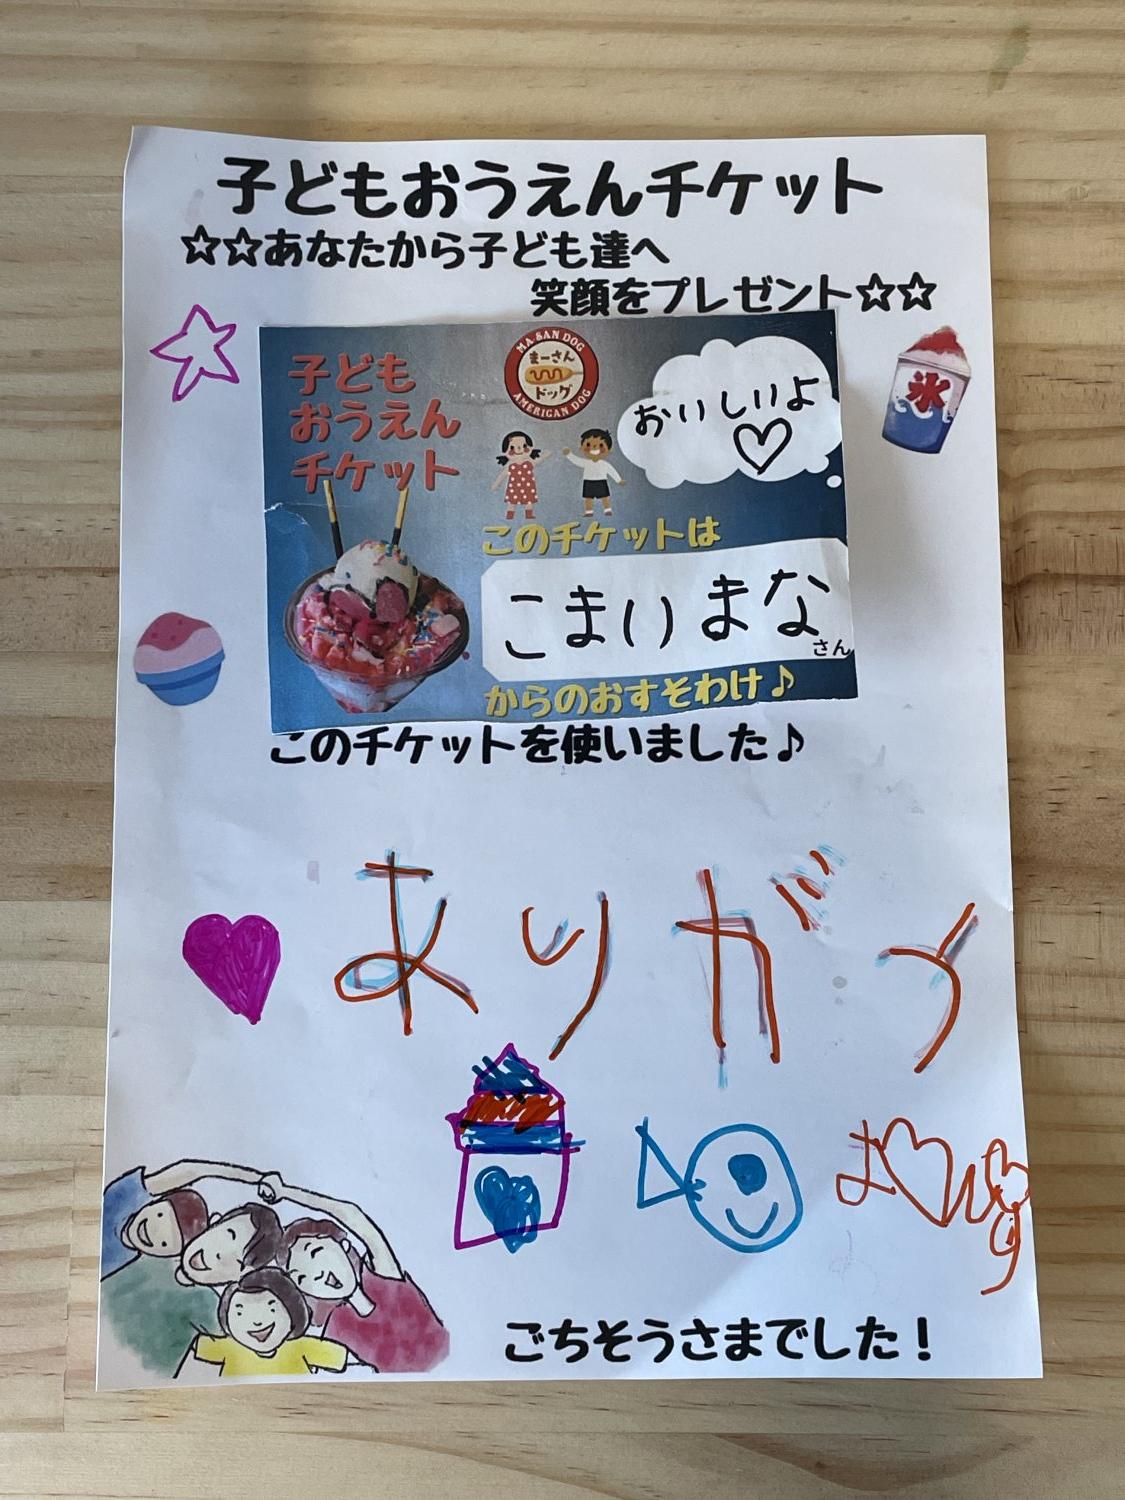 子どもおうえんチケット
☆☆あなたから子ども達へ
笑顔をプレゼント☆☆
子ども
おうえん
チケット
MA-SAN DOG
まーさん
ドッグ
AMERICAN DOG
おいしいよ
♡
氷
このチケットは
こまいまな
さん
からのおすそわけ♪
このチケットを使いました♪
ありが
ごちそうさまでした！